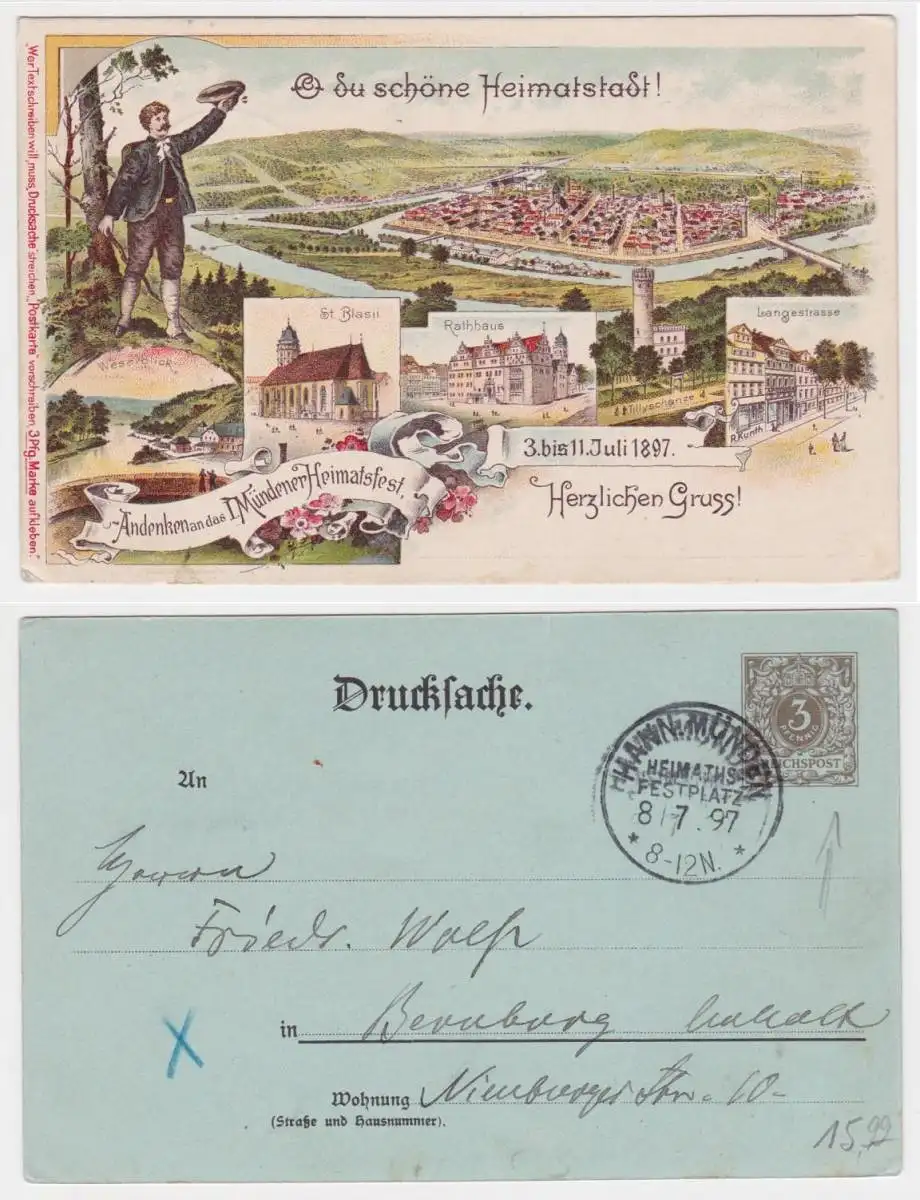 "Wer Text schreiben will, muss „Drucksache" streichen, „Postkarte" vorschreiben, 3 Pfg. Marke aufkleben."
O du schöne Heimatstadt!
St Blasii
Rathhaus
Langestrasse
Weserblick
Tillyschanze
R. Kunth
3. bis 11. Juli 1897.
Andenken an das I Mündener Heimatsfest.
Herzlichen Gruss!
Drucksache.
3
PFENNIG
REICHSPOST
HANN. MÜNDEN
HEIMATHS-
FESTPLATZ
8/7.97
* 8-12N. *
An
Herrn
Friedr. Wolff
in Bernburg Anhalt
Wohnung Nienburger Str. 10-
(Straße und Hausnummer).
X
15,